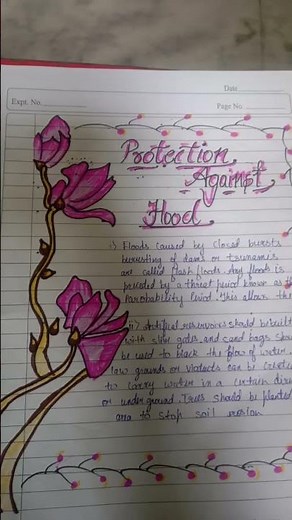 Date
Expt. No.
Page No.
Protection
Against
Flood
i) Floods caused by closed bursts
bursting of dams or tsunamis
are called flash floods. Any floods is
preceded by a threat period known as the
Parobability Period. This allows the
ii) Artifical reservoirs should be built
with sluir gates, and sand bags shou
be used to black the flow of water.
low grounds or viaducts can be
to carry water in a certain direc
or underground. Trees should be planted
area to stop soil erosion